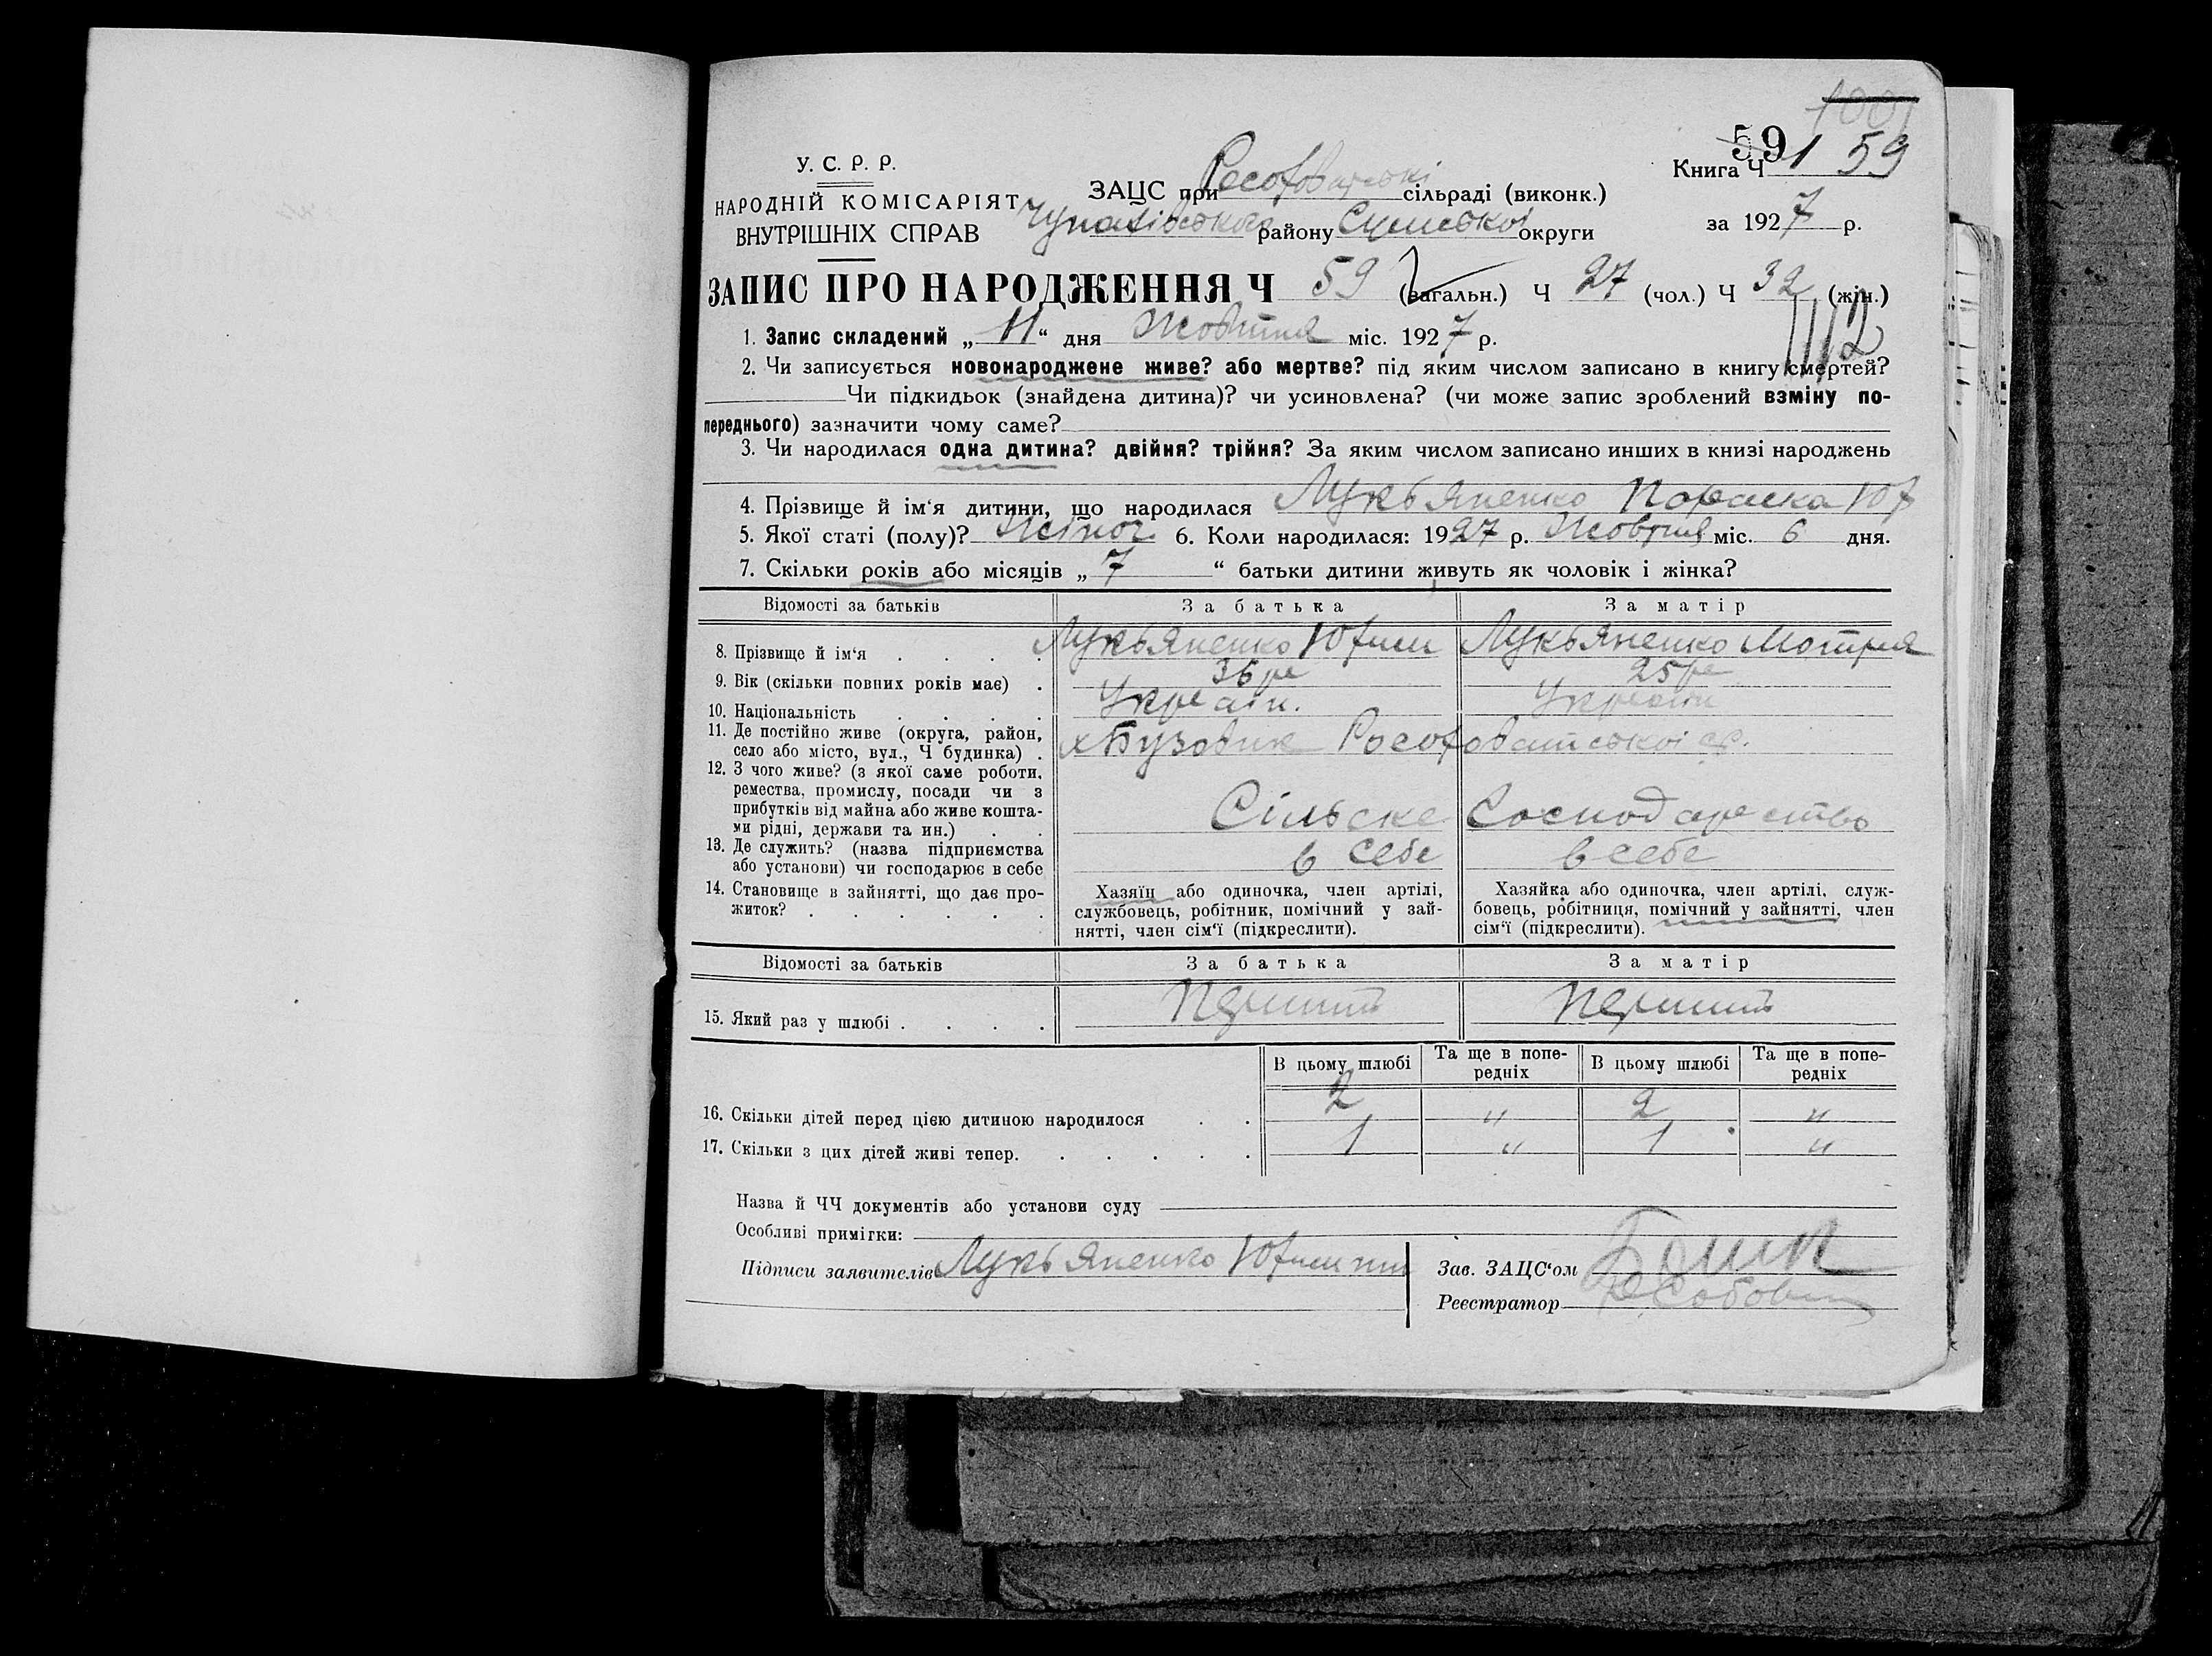 1001
59
У. С. Р. Р.
НАРОДНІЙ КОМІСАРІЯТ
ВНУТРІШНІХ СПРАВ
ЗАЦС при сільраді (виконк.)
району Сумської округи
Книга Ч 1 59
за 1927 р.
ЗАПИС ПРО НАРОДЖЕННЯ Ч 59 (загальн.) Ч 27 (чол.) Ч 32 (жін.)
1. Запис складений „ 11 “ дня Жовтня міс. 1927 р.
2. Чи записується новонароджене живе? або мертве? під яким числом записано в книгу смертей?
Чи підкидьок (знайдена дитина)? чи усиновлена? (чи може запис зроблений взміну по-
переднього) зазначити чому саме?
3. Чи народилася одна дитина? двійня? трійня? За яким числом записано инших в книзі народжень
4. Прізвище й ім‘я дитини, що народилася Лукьяненко Параска Юф
5. Якої статі (полу)? Жіноч 6. Коли народилася: 1927 р. Жовтня міс. 6 дня.
7. Скільки років або місяців „ 7 “ батьки дитини живуть як чоловік і жінка?
Відомості за батьків За батька За матір
8. Прізвище й ім‘я . . . . Лукьяненко Юфим Лукьяненко Мотрия
9. Вік (скільки повних років має) . 36 ре 25 ре
10. Національність . . . . Украін. Украін
11. Де постійно живе (округа, район,
село або місто, вул., Ч будинка) . х Бузовик Росоховатськоі ср.
12. З чого живе? (з якої саме роботи,
ремества, промислу, посади чи з
прибутків від майна або живе кошта-
ми рідні, держави та ин.) . . Сільске Господарство
13. Де служить? (назва підприємства
або установи) чи господарює в себе в себе в себе
14. Становище в зайнятті, що дає про-
житок? . . . . . .
Хазяїн або одиночка, член артілі,
службовець, робітник, помічний у зай-
нятті, член сім‘ї (підкреслити).
Хазяйка або одиночка, член артілі, служ-
бовець, робітниця, помічний у зайнятті, член
сім‘ї (підкреслити).
Відомості за батьків За батька За матір
15. Який раз у шлюбі . . . . Перший Перший
В цьому шлюбі Та ще в попе-редніх В цьому шлюбі Та ще в попе-редніх
16. Скільки дітей перед цією дитиною народилося . . 2 " 2 "
17. Скільки з цих дітей живі тепер. . . . . . 1 " 1 "
Назва й ЧЧ документів або установи суду
Особливі примігки:
Підписи заявителів Лукьяненко Юфим
Зав. ЗАЦС‘ом
Реєстратор